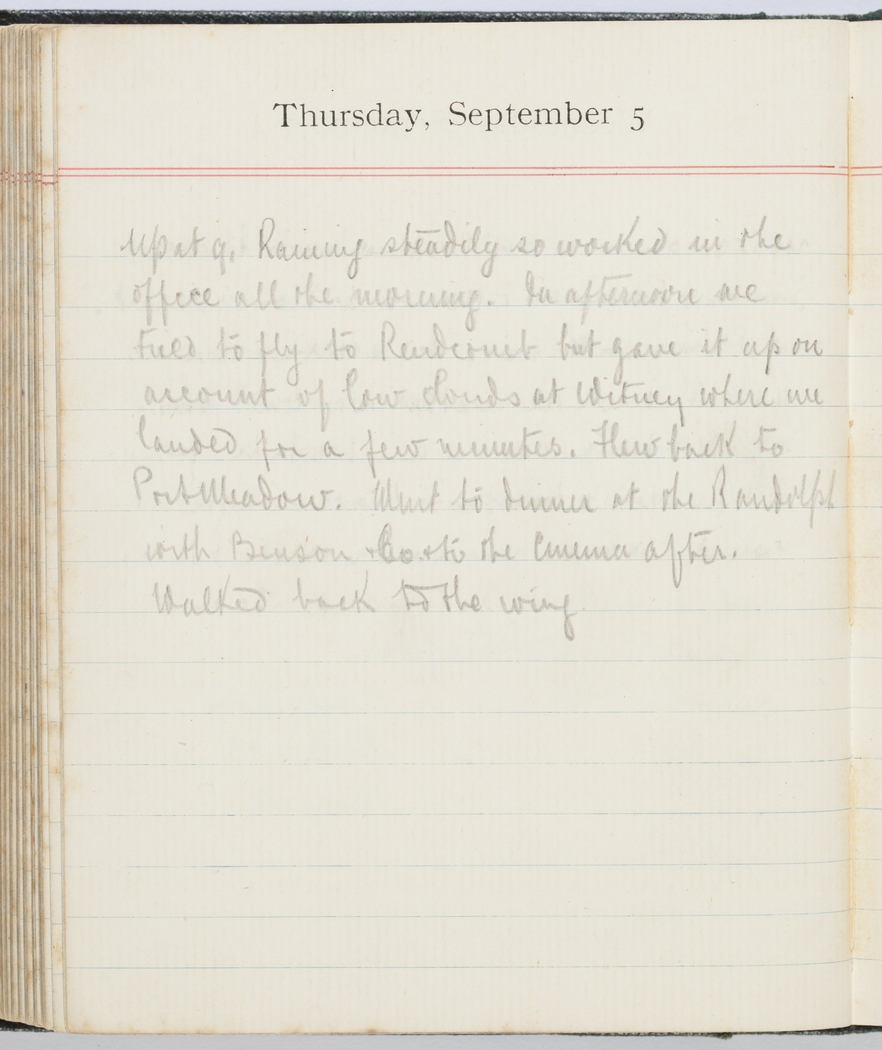 Thursday, September 5
Up at 9. Raining steadily so worked in the
office all the morning. In afternoon we
tried to fly to Rendcomb but gave it up on
account of low clouds at Witney where we
landed for a few minutes. Flew back to
Port Meadow. Went to dinner at the Randolph
with Benson & Co. & to the Cinema after.
Walked back to the wing